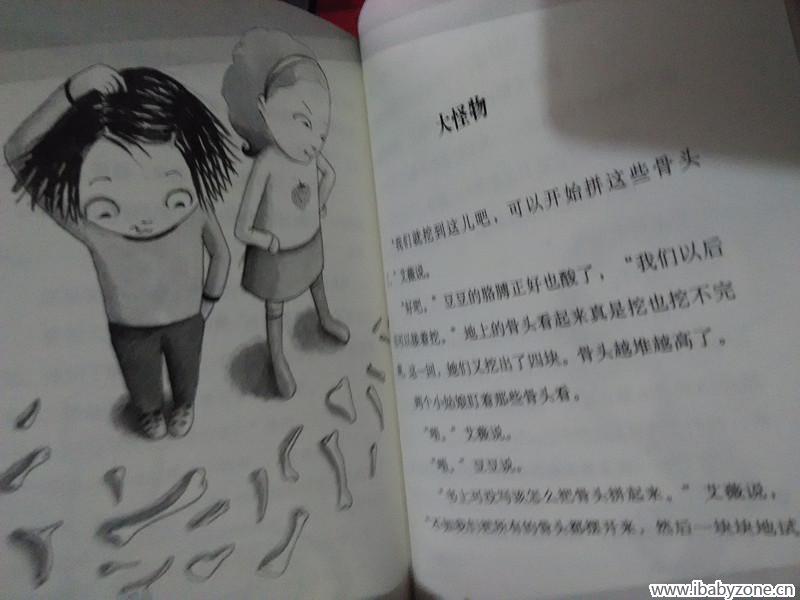 大怪物
“我们就挖到这儿吧，可以开始拼这些骨头
。”艾薇说。
“好吧。”豆豆的胳膊正好也酸了，“我们以后
可以接着挖。”地上的骨头看起来真是挖也挖不完
，这一回，她们又挖出了四块。骨头越堆越高了。
两个小姑娘盯着那些骨头看。
“嗯。”艾薇说。
“嗯。”豆豆说。
“书上可没写该怎么把骨头拼起来。”艾薇说，
“不如我们把所有的骨头都摆开来，然后一块块地试
www.ibabyzone.cn